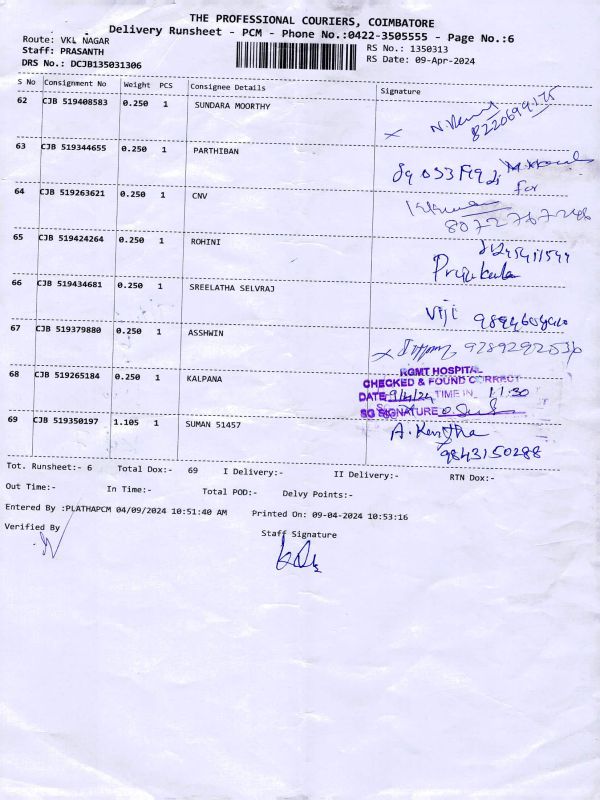 THE PROFESSIONAL COURIERS, COIMBATORE
Delivery Runsheet - PCM - Phone No.:0422-3505555 - Page No.:6
Route: VKL NAGAR
Staff: PRASANTH
RS No.: 1350313
DRS No.: DCJB135031306
RS Date: 09-Apr-2024
S No Consignment No Weight PCS Consignee Details Signature
62 CJB 519408583 0.250 1 SUNDARA MOORTHY
63 CJB 519344655 0.250 1 PARTHIBAN
64 CJB 519263621 0.250 1 CNV
for
65 CJB 519424264 0.250 1 ROHINI
66 CJB 519434681 0.250 1 SREELATHA SELVRAJ
Viji
67 CJB 519379880 0.250 1 ASSHWIN
68 CJB 519265184 0.250 1 KALPANA
KGMT HOSPITAL
CHECKED & FOUND CORRECT
DATE 9/4/24 TIME IN 11:30
SG SIGNATURE
69 CJB 519350197 1.105 1 SUMAN 51457
9843150288
Tot. Runsheet:- 6 Total Dox:- 69 I Delivery:- II Delivery:- RTN Dox:-
Out Time:- In Time:- Total POD:- Delvy Points:-
Entered By :PLATHAPCM 04/09/2024 10:51:40 AM Printed On: 09-04-2024 10:53:16
Verified By
Staff Signature